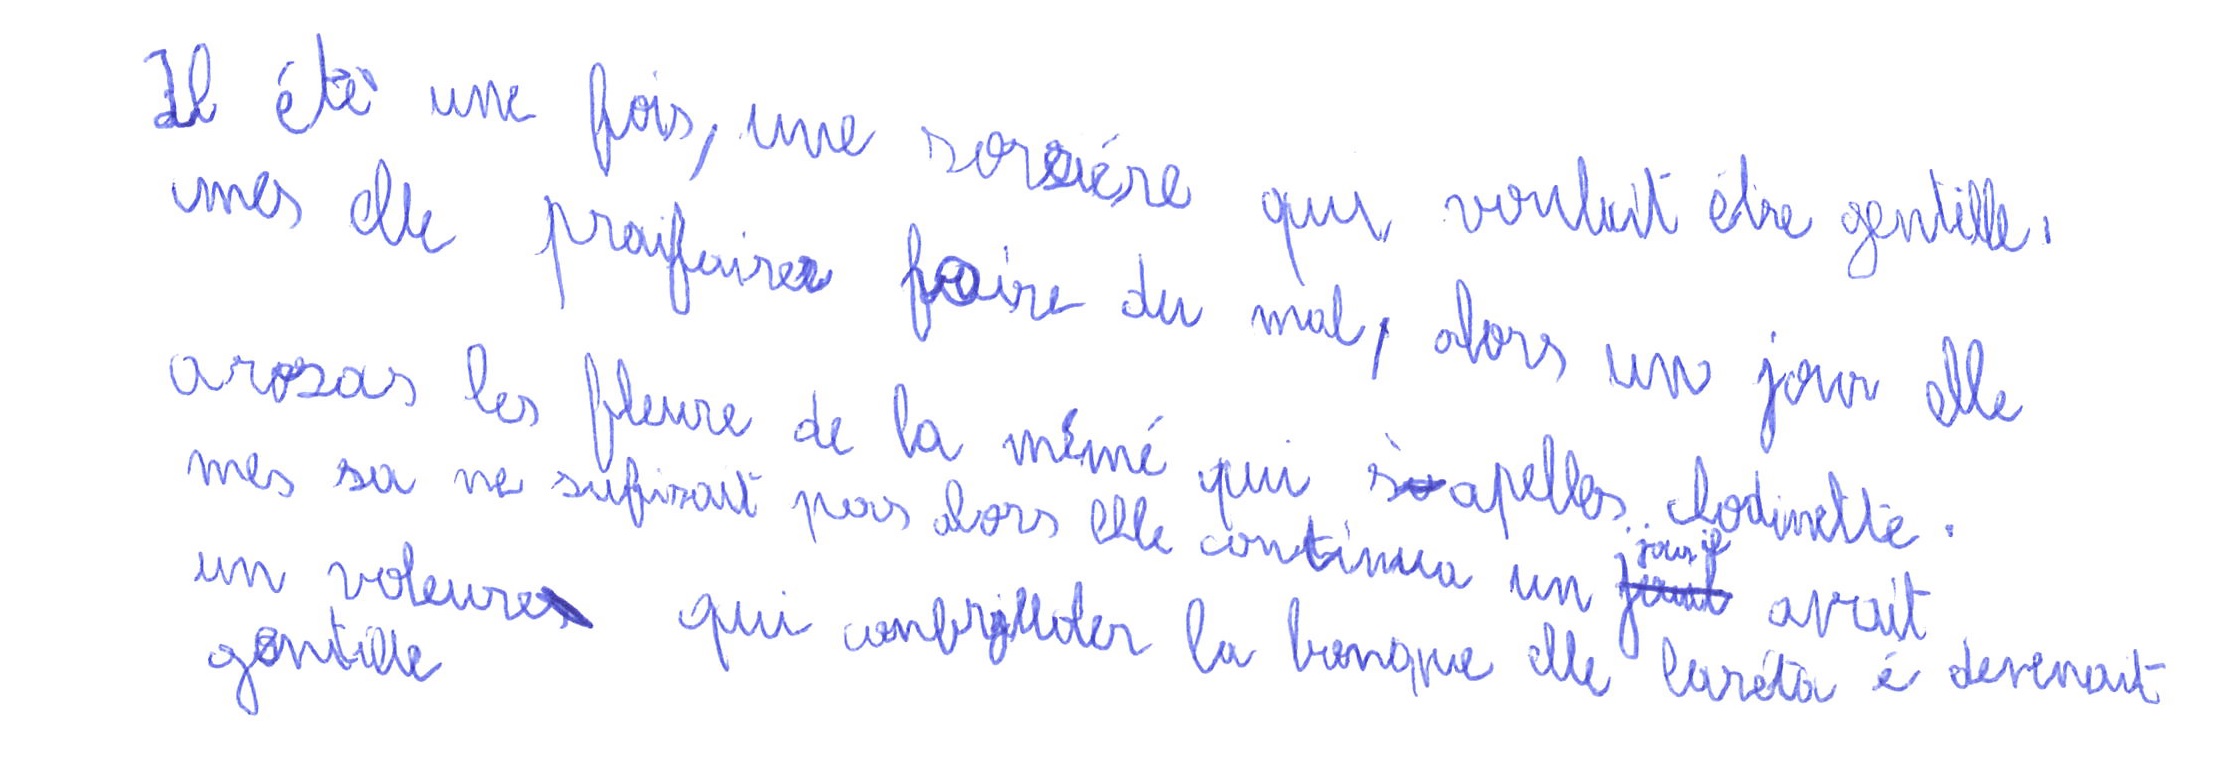 Il été une fois, une sorsiére qui voulait étre gentille.
mes elle praifairer faire du mal, alors un jour elle
arosas les fleure de la mémé qui s'apelles clodinette.
mes sa ne sufisait pas alors elle continua un jour il avait
un voleure qui canbriller la banque elle laréta é devenait
gentille